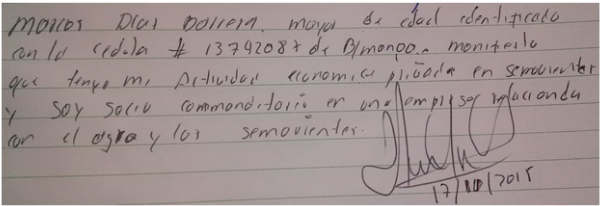 Marcos Dias Barrera, mayor de edad identificado
con la cedula # 13792087 de B/manga. manifiesto
que tengo mi Actividad economica privada en semovientes
y soy socio commanditario en una empresa relacionda
con el agro y los semovientes.
17/10/2015